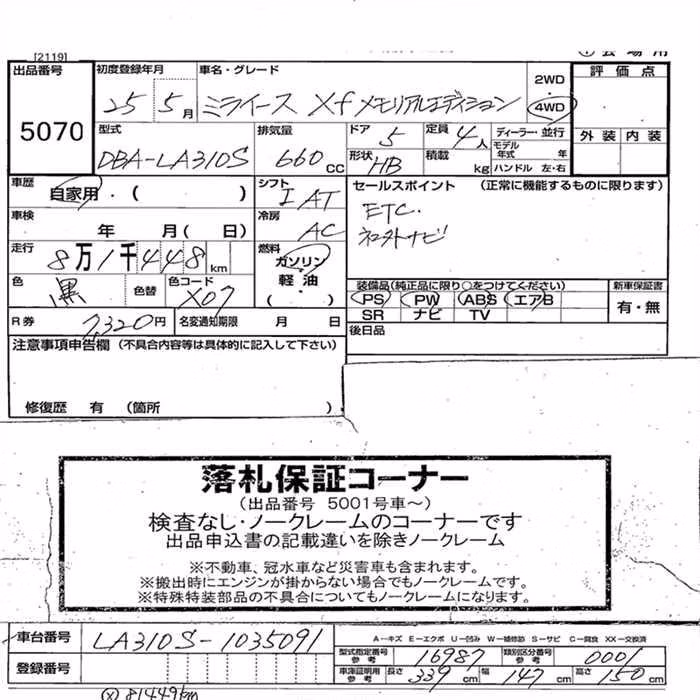 [2119]
出品番号 5070
初度登録年月 25 5月
車名・グレード ミライース Xf メモリアルエディション
2WD
4WD
評価点
外装 内装
型式 DBA-LA310S
排気量 660 CC
ドア 5
形状 HB
定員 4人
積載 kg
ディーラー・並行
モデル年式 年
ハンドル 左・右
車歴 自家用・( )
シフト I AT
セールスポイント (正常に機能するものに限ります)
ETC.
社外ナビ
車検 年 月( 日)
冷房 AC
走行 8万1千448km
燃料 ガソリン・軽油 ( )
色 黒 色替
色コード X07
装備品(純正品に限り○をつけてください)
PS PW ABS エアB
SR ナビ TV
新車保証書
有・無
R券 7,320円
名変通知期限 月 日
後日品
注意事項申告欄 (不具合内容等は具体的に記入して下さい)
修復歴 有 (箇所 )
落札保証コーナー
(出品番号 5001号車~)
検査なし・ノークレームのコーナーです
出品申込書の記載違いを除きノークレーム
※不動車、冠水車など災害車も含まれます。
※搬出時にエンジンが掛からない場合でもノークレームです。
※特殊特装部品の不具合についてもノークレームになります。
車台番号 LA310S-1035091
A-キズ E-エクボ U-凹み W-補修跡 S-サビ C-腐食 XX-交換済
型式指定番号 参考 16987
類別区分番号 参考 0001
登録番号
車庫証明用 参考 長さ 339cm 幅 147cm 高さ 150cm
81449km